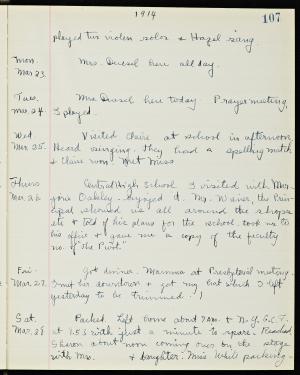 1914
107
played two violin solos & Hazel sang.
Mon. Mrs. Diesel here all day.
Mar 23.
Tues. Mrs Diesel here today. Prayer meeting,
Mar. 24. I played.
Wed. Visited Claire at school in afternoon,
Mar 25. Heard singing. They had a spelling match
& Claire won! Met Miss
Thurs Central High School I visited with Mar-
Mar. 26. jorie Oakley - enjoyed it. Mr. the Prin-
cipal showed us all around the shops
etc & told of his plans for the school. took me to
his office & gave me a copy of the faculty
no. of "the
Fri. Got dinner. Mamma at Presbyterial meeting.
Mar. 27. I met her downtown & got my hat which I left
yesterday to be trimmed.
Sat. Packed. Left home about
Mar. 28 at 1.53 with just a minute to spare. Reached
Sharon about noon coming over on the stage
with Mrs. & daughter. Miss White packing -